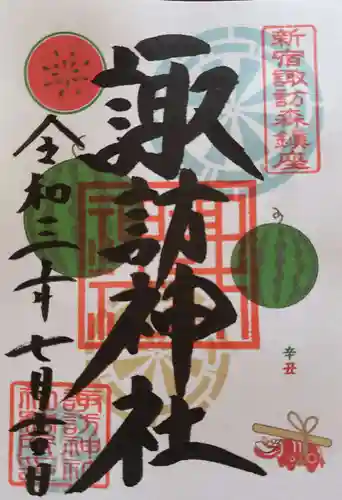 新宿諏訪森鎮座
諏訪神社
辛丑
令和三年七月